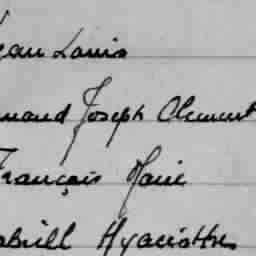 Jean Louis
Joseph Clement
François Marie
Hyacinthe